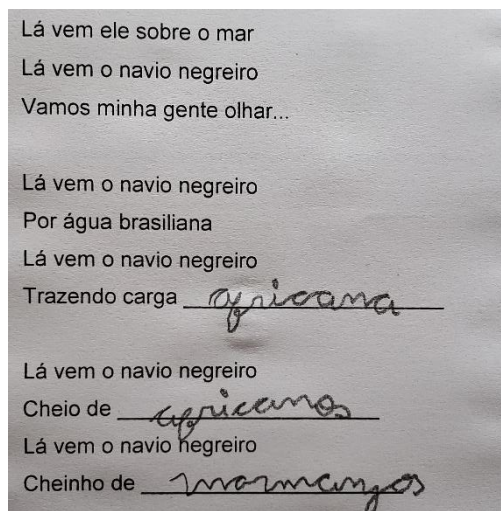 Lá vem ele sobre o mar
Lá vem o navio negreiro
Vamos minha gente olhar...
Lá vem o navio negreiro
Por água brasiliana
Lá vem o navio negreiro
Trazendo carga africana
Lá vem o navio negreiro
Cheio de africanos
Lá vem o navio negreiro
Cheinho de